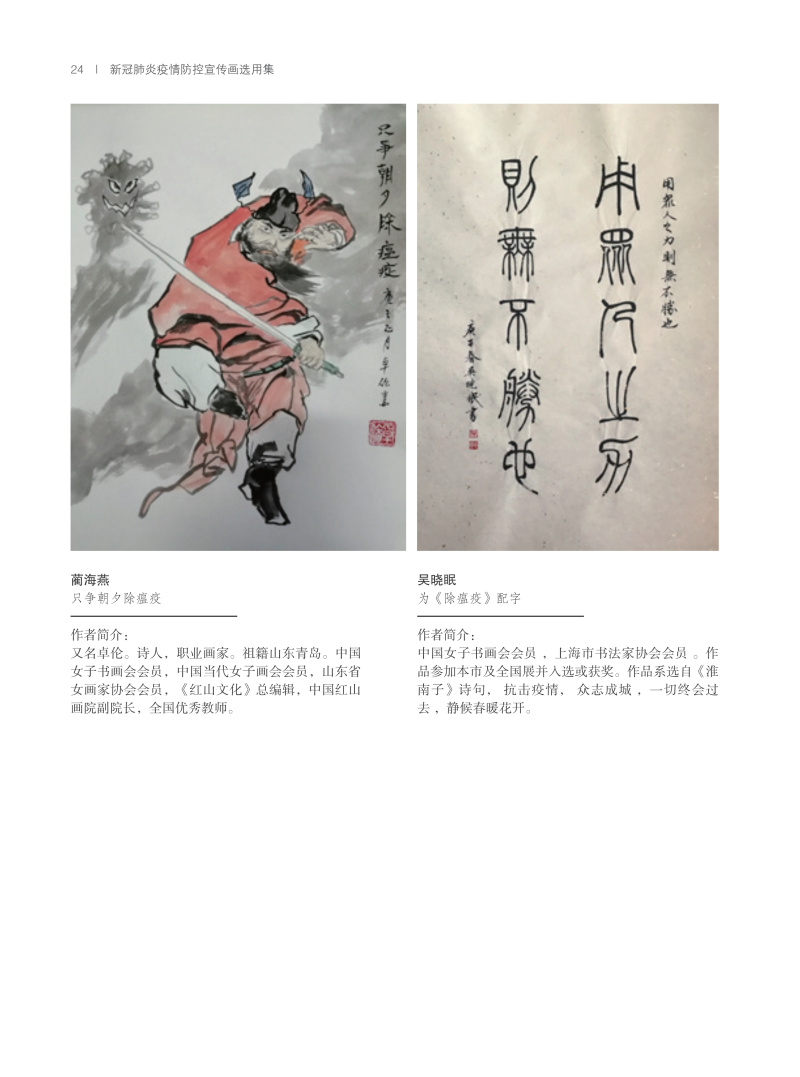 24 | 新冠肺炎疫情防控宣传画选用集
只争朝夕除瘟疫
庚子正月
用眾人之力
則無不勝也
用眾人之力則無不勝也
庚子春吳曉眠書
蔺海燕
只争朝夕除瘟疫
作者简介：
又名卓伦。诗人，职业画家。祖籍山东青岛。中国
女子书画会会员，中国当代女子画会会员，山东省
女画家协会会员，《红山文化》总编辑，中国红山
画院副院长，全国优秀教师。
吴晓眠
为《除瘟疫》配字
作者简介：
中国女子书画会会员 ，上海市书法家协会会员 。作
品参加本市及全国展并入选或获奖。作品系选自《淮
南子》诗句， 抗击疫情， 众志成城 ，一切终会过
去 ，静候春暖花开。